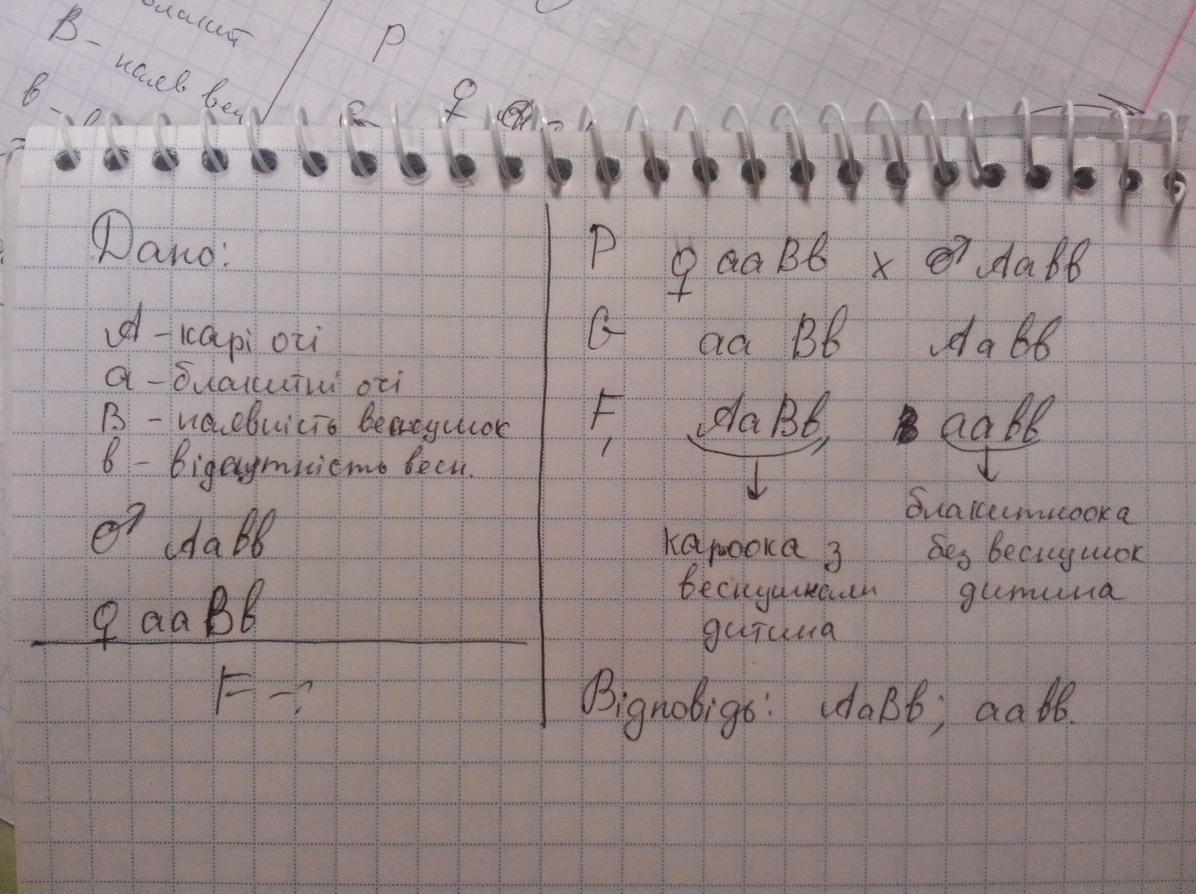 В - наяв вес
в -
Р
♀
Дано:
А - карі очі
а - блакитні очі
В - наявність веснушок
в - відсутність весн.
♂ Аавв
♀ ааВв
F - ?
Р ♀ ааВв х ♂ Аавв
G аа Вв Аа вв
F₁ АаВв, аавв
кароока з веснушками дитина
блакитноока без веснушок дитина
Відповідь: АаВв; аавв.